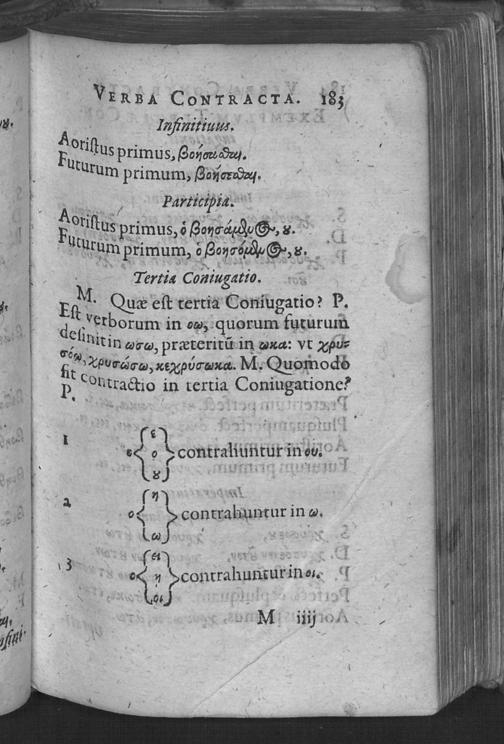 VERBA CONTRACTA. 183
Infinitiuus.
Aoristus primus, βοήσασθαι.
Futurum primum, βοήσεσθαι.
Participia.
Aoristus primus, ὁ βοησάμενος, ȣ.
Futurum primum, ὁ βοησόμενος, ȣ.
Tertia Coniugatio.
M. Quæ est tertia Coniugatio? P.
Est verborum in οω, quorum futurum
desinit in ωσω, præteritū in ωκα: vt χρυ-
σόω, χρυσώσω, κεχρύσωκα. M. Quomodo
fit contractio in tertia Coniugatione?
P.
1 ο { ε ο ȣ } contrahuntur in ου.
2 ο { η ω } contrahuntur in ω.
3 ο { ει η οι } contrahuntur in οι.
M iiij